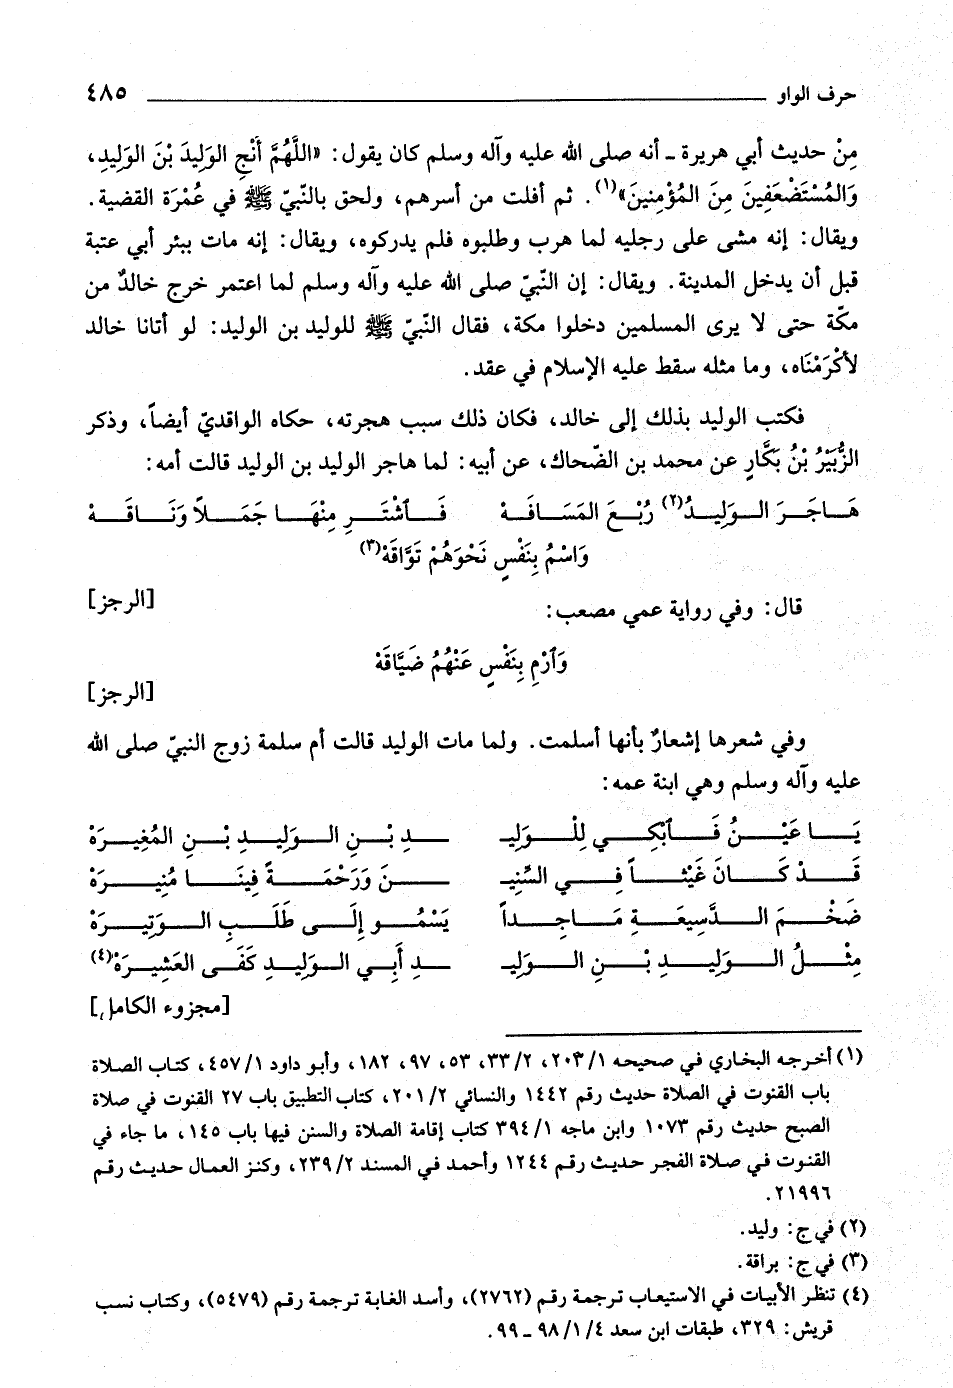 حرف الواو ٤٨٥
مِنْ حديث أبي هريرة ـ أنه صلى الله عليه وآله وسلم كان يقول: «اللَّهُمَّ أَنْجِ الوَلِيدَ بْنَ الوَلِيدِ،
وَالمُسْتَضْعَفِينَ مِنَ المُؤْمِنينَ»(١). ثم أفلت من أسرهم، ولحق بالنّبيّ ﷺ في عُمْرَة القضية.
ويقال: إنه مشى على رجليه لما هرب وطلبوه فلم يدركوه، ويقال: إنه مات ببئر أبي عتبة
قبل أن يدخل المدينة. ويقال: إن النّبيّ صلى الله عليه وآله وسلم لما اعتمر خرج خالدٌ من
مكّة حتى لا يرى المسلمين دخلوا مكة، فقال النّبيّ ﷺ للوليد بن الوليد: لو أتانا خالد
لأكْرَمْنَاه، وما مثله سقط عليه الإسلام في عقد.
فكتب الوليد بذلك إلى خالد، فكان ذلك سبب هجرته، حكاه الواقديّ أيضاً، وذكر
الزُّبَيْرُ بْنُ بَكَّارٍ عن محمد بن الضّحاك، عن أبيه: لما هاجر الوليد بن الوليد قالت أمه:
هَاجَرَ الوَلِيدُ(٢) رُبْعَ المَسَافَهْ فَٱشْتَرِ مِنْهَا جَمَلاً وَنَاقَهْ
وَاسْمُ بِنَفْسٍ نَحْوَهُمْ تَوَّاقَهْ(٣)
[الرجز]
قال: وفي رواية عمي مصعب:
وَٱرْمِ بِنَفْسٍ عَنْهُمُ ضَيَّاقَهْ
[الرجز]
وفي شعرها إشعارٌ بأنها أسلمت. ولما مات الوليد قالت أم سلمة زوج النبيّ صلى الله
عليه وآله وسلم وهي ابنة عمه:
يَا عَيْنُ فَٱبْكِي لِلْوَلِيـ ـدِ بْنِ الوَلِيدِ بْنِ المُغِيرَهْ
قَدْ كَانَ غَيْثاً فِي السِّنِيـ ـنَ وَرَحْمَةً فِينَا مُنِيرَهْ
ضَخْمَ الدَّسِيعَةِ مَاجِداً يَسْمُو إِلَى طَلَبِ الوَتِيرَهْ
مِثْلُ الوَلِيدِ بْنِ الوَلِيـ ـدِ أَبِي الوَلِيدِ كَفَى العَشِيرَهْ(٤)
[مجزوء الكامل]
(١) أخرجه البخاري في صحيحه ١/ ٢٠٣، ٢/ ٣٣، ٥٣، ٩٧، ١٨٢، وأبو داود ١/ ٤٥٧، كتاب الصلاة
باب القنوت في الصلاة حديث رقم ١٤٤٢ والنسائي ٢/ ٢٠١، كتاب التطبيق باب ٢٧ القنوت في صلاة
الصبح حديث رقم ١٠٧٣ وابن ماجه ١/ ٣٩٤ كتاب إقامة الصلاة والسنن فيها باب ١٤٥، ما جاء في
القنوت في صلاة الفجر حديث رقم ١٢٤٤ وأحمد في المسند ٢/ ٢٣٩، وكنز العمال حديث رقم
٢١٩٩٦.
(٢) في ج: وليد.
(٣) في ج: براقة.
(٤) تنظر الأبيات في الاستيعاب ترجمة رقم (٢٧٦٢)، وأسد الغابة ترجمة رقم (٥٤٧٩)، وكتاب نسب
قريش: ٣٢٩، طبقات ابن سعد ٤/ ١/ ٩٨ ـ ٩٩.